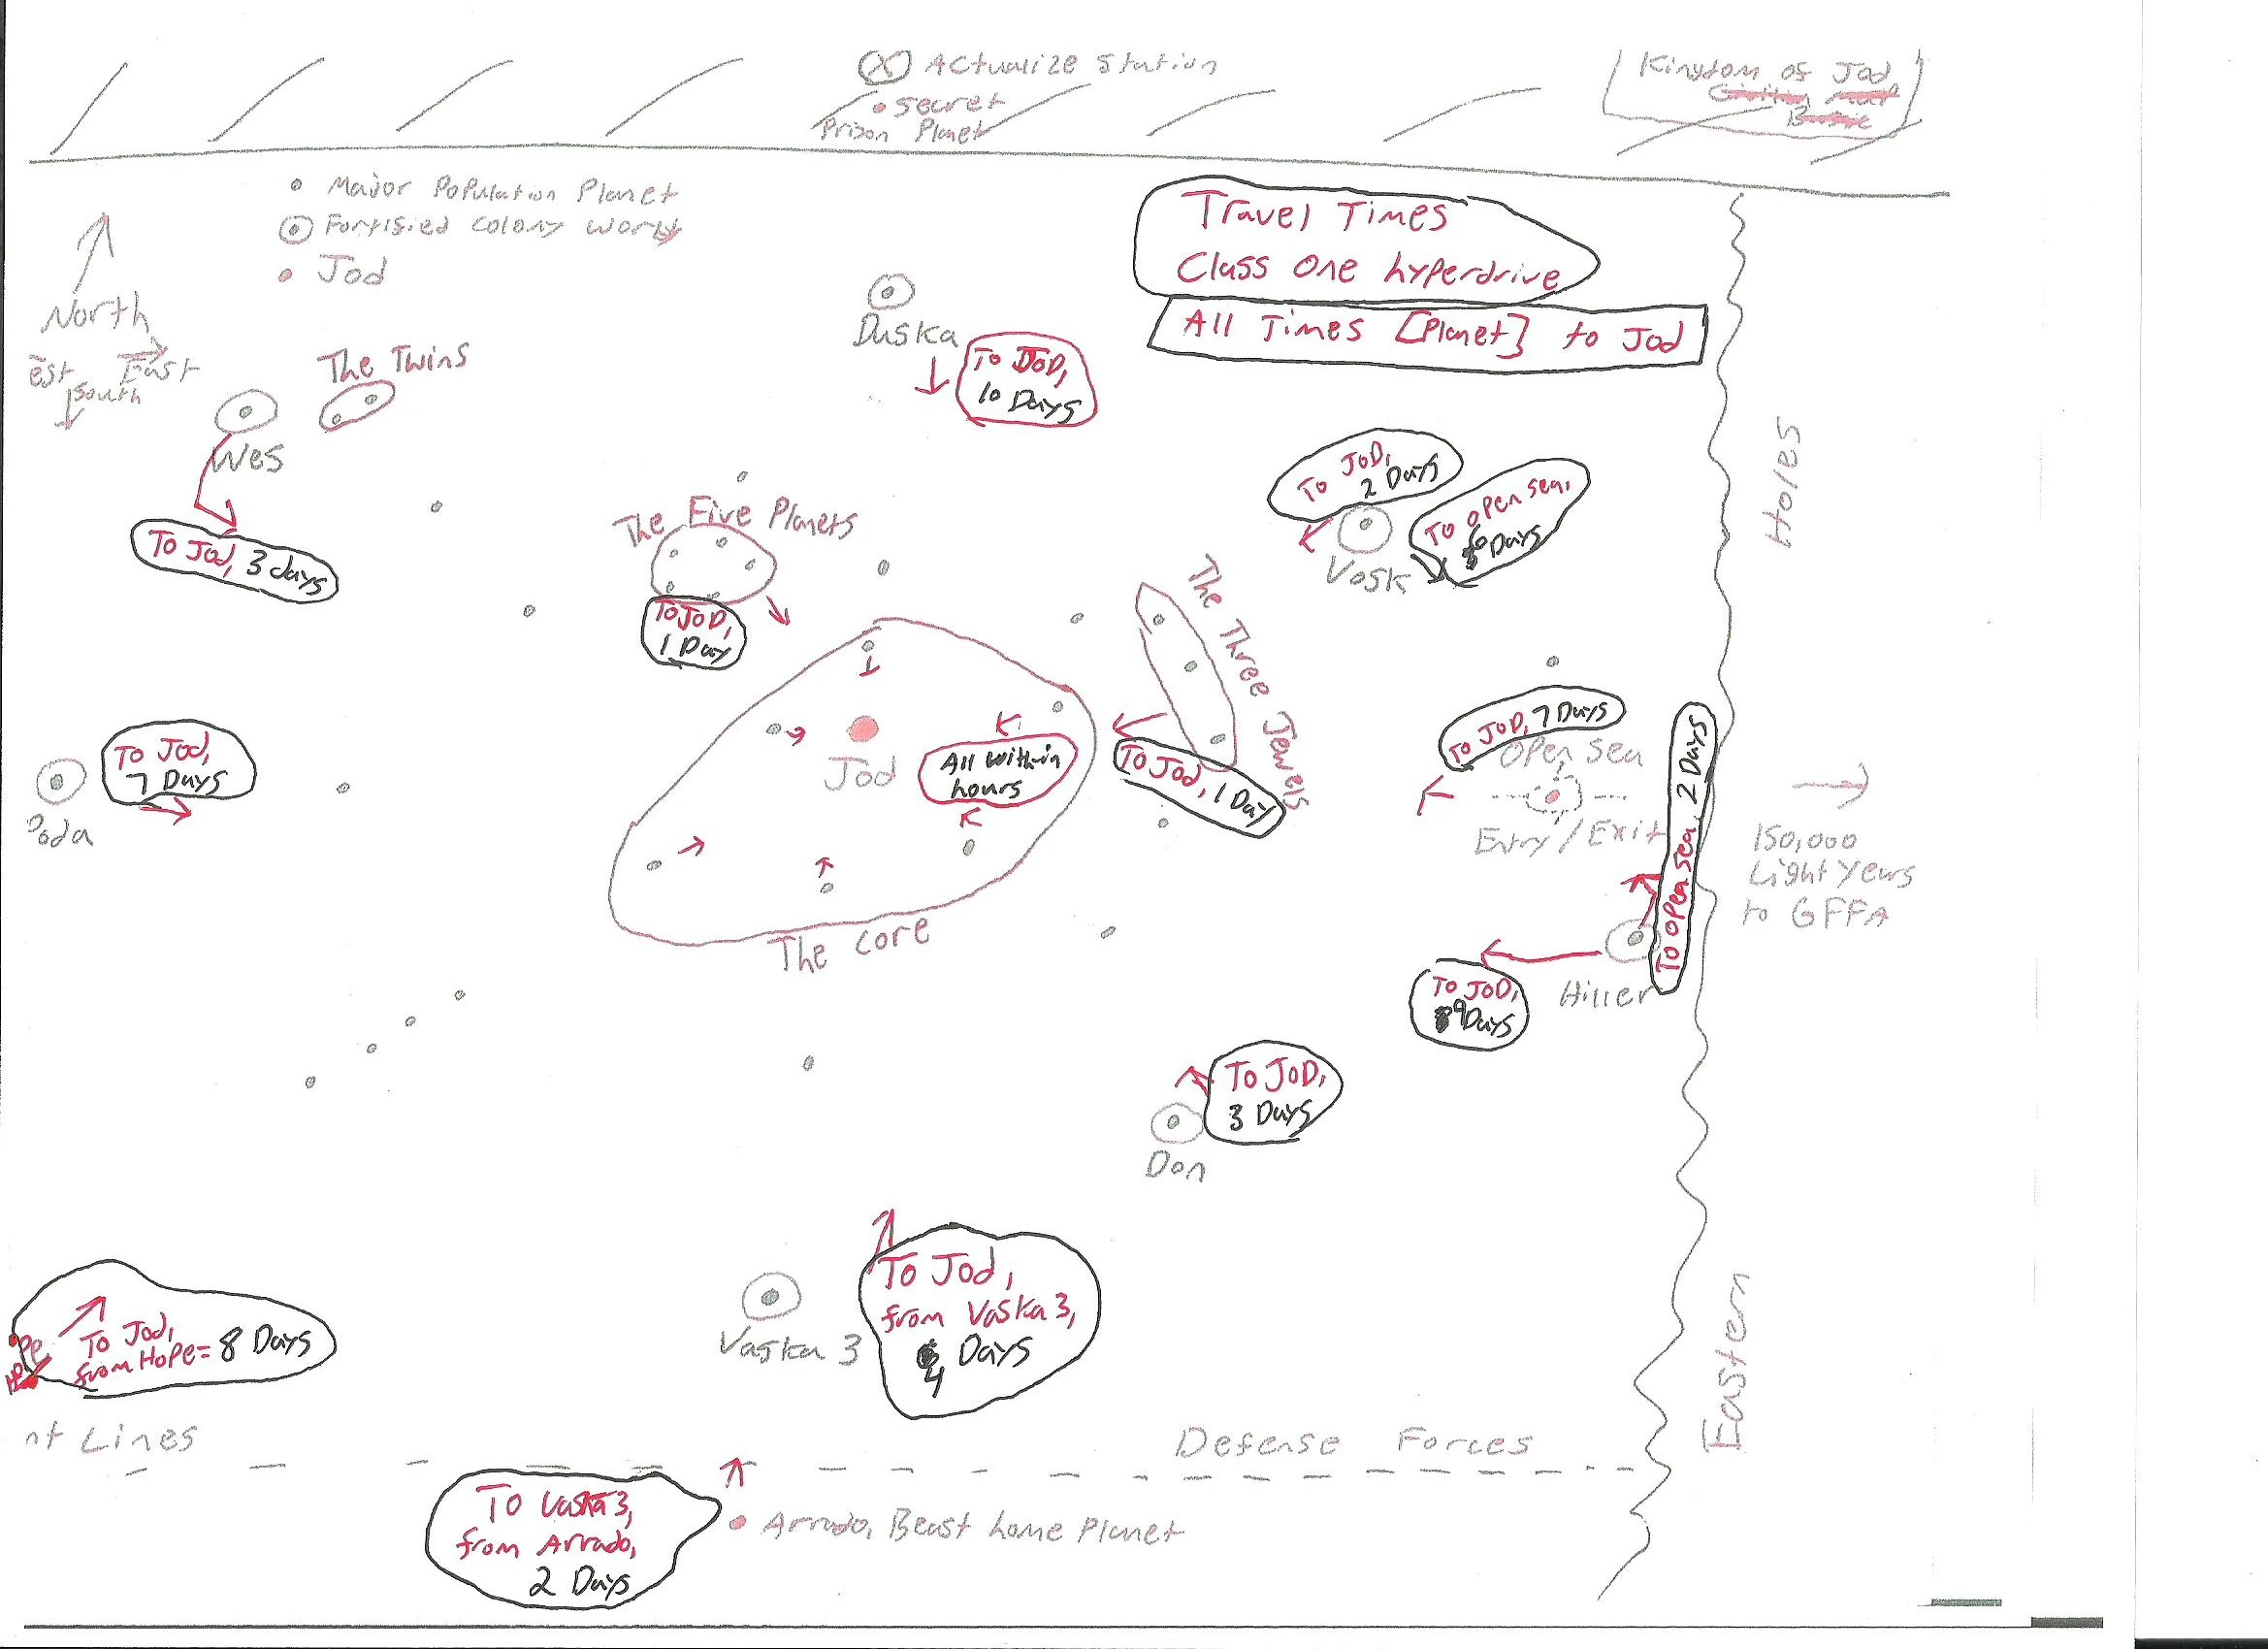 Actualize Station
Secret
Prison Planet
Kingdom of Jod
Major Population Planet
Fortified Colony World
Jod
North
est East
South
Travel Times
Class One hyperdrive
All Times [Planet] to Jod
Duska
To JOD,
10 Days
The Twins
Wes
To Jod, 3 days
The Five Planets
To JOD,
1 Day
To JOD,
2 Days
To open sea,
6 Days
Vosk
Holes
The Three Jewels
To Jod, 1 Day
Jod
All within
hours
The Core
To JOD, 7 Days
Open Sea
Entry/Exit
To open sea, 2 Days
150,000
Light Years
to GFFA
To Jod,
7 Days
Poda
Hiller
To JOD,
9 Days
To JOD,
3 Days
Don
To Jod,
from Vaska 3,
4 Days
Vaska 3
pe
To Jod,
from Hope = 8 Days
nt Lines
Defense Forces
Eastern
To Vaska 3,
from Arrado,
2 Days
Arrado, Beast home Planet